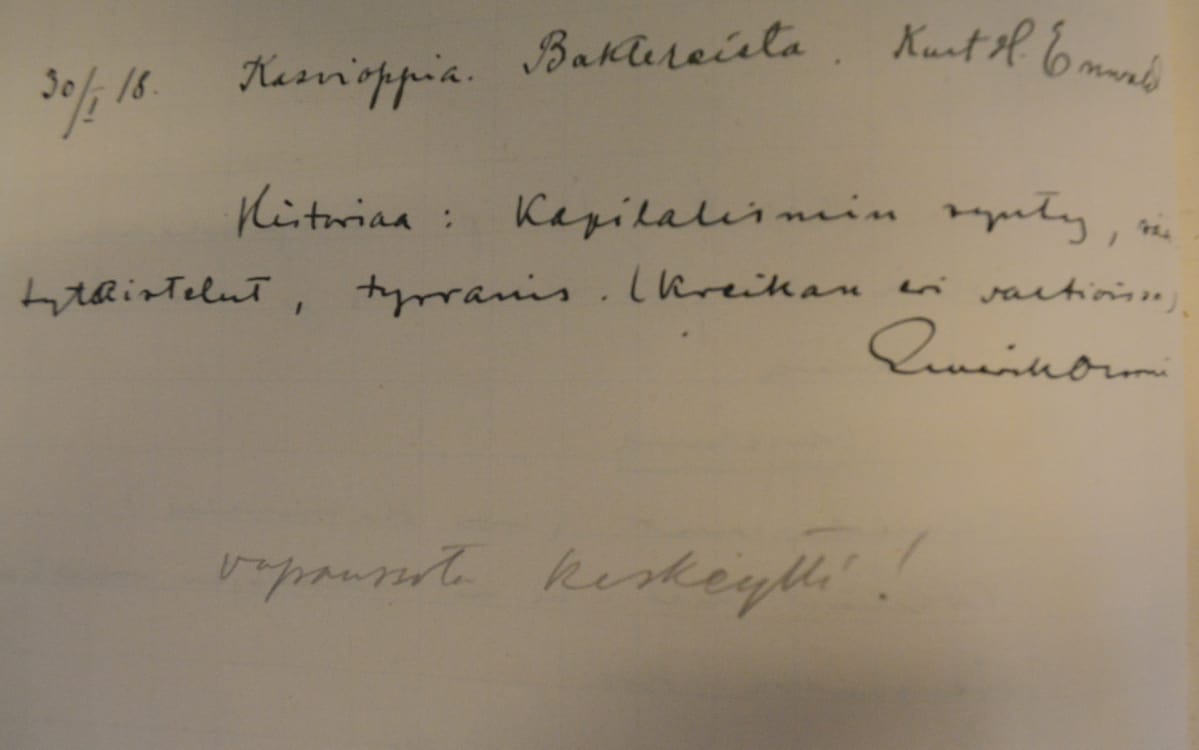 30/I 18. Kasvioppia. Baktereista. Kurt H. Enwald
Historiaa : Kapitalismin synty, sää
tytaistelut, tyrannis. (Kreikan eri valtioissa)
vapaussota keskeytti!